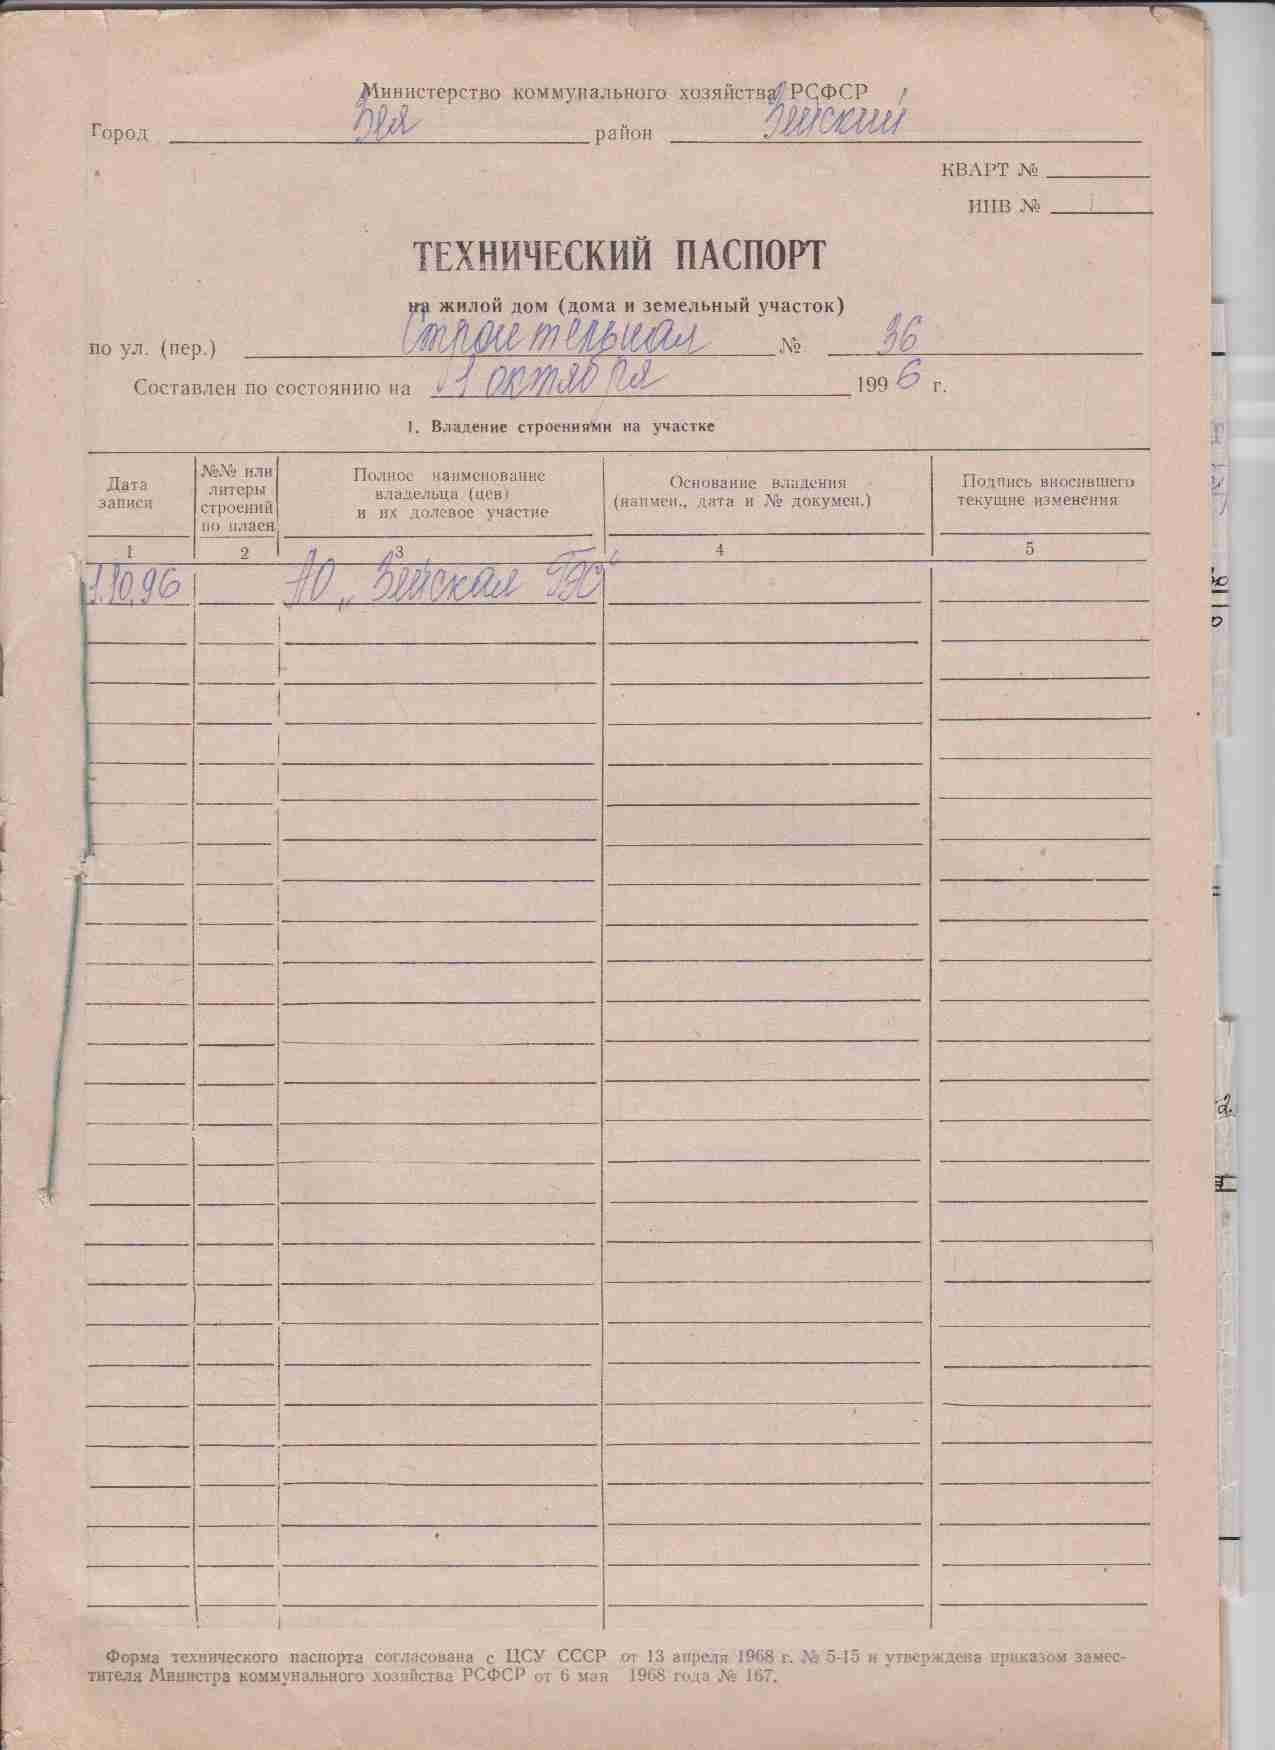 Министерство коммунального хозяйства РСФСР
Город Зея район Зейский
КВАРТ №
ИНВ №
ТЕХНИЧЕСКИЙ ПАСПОРТ
на жилой дом (дома и земельный участок)
по ул. (пер.) Строительная № 36
Составлен по состоянию на 1 октября 1996 г.
1. Владение строениями на участке
Дата записи
№№ или литеры строений по плаен
Полное наименование владельца (цев) и их долевое участие
Основание владения (наимен., дата и № докумен.)
Подпись вносившего текущие изменения
1 2 3 4 5
1.10.96 АО „Зейская ГЭС“
Форма технического паспорта согласована с ЦСУ СССР от 13 апреля 1968 г. № 5-15 и утверждена приказом замес-
тителя Министра коммунального хозяйства РСФСР от 6 мая 1968 года № 167.